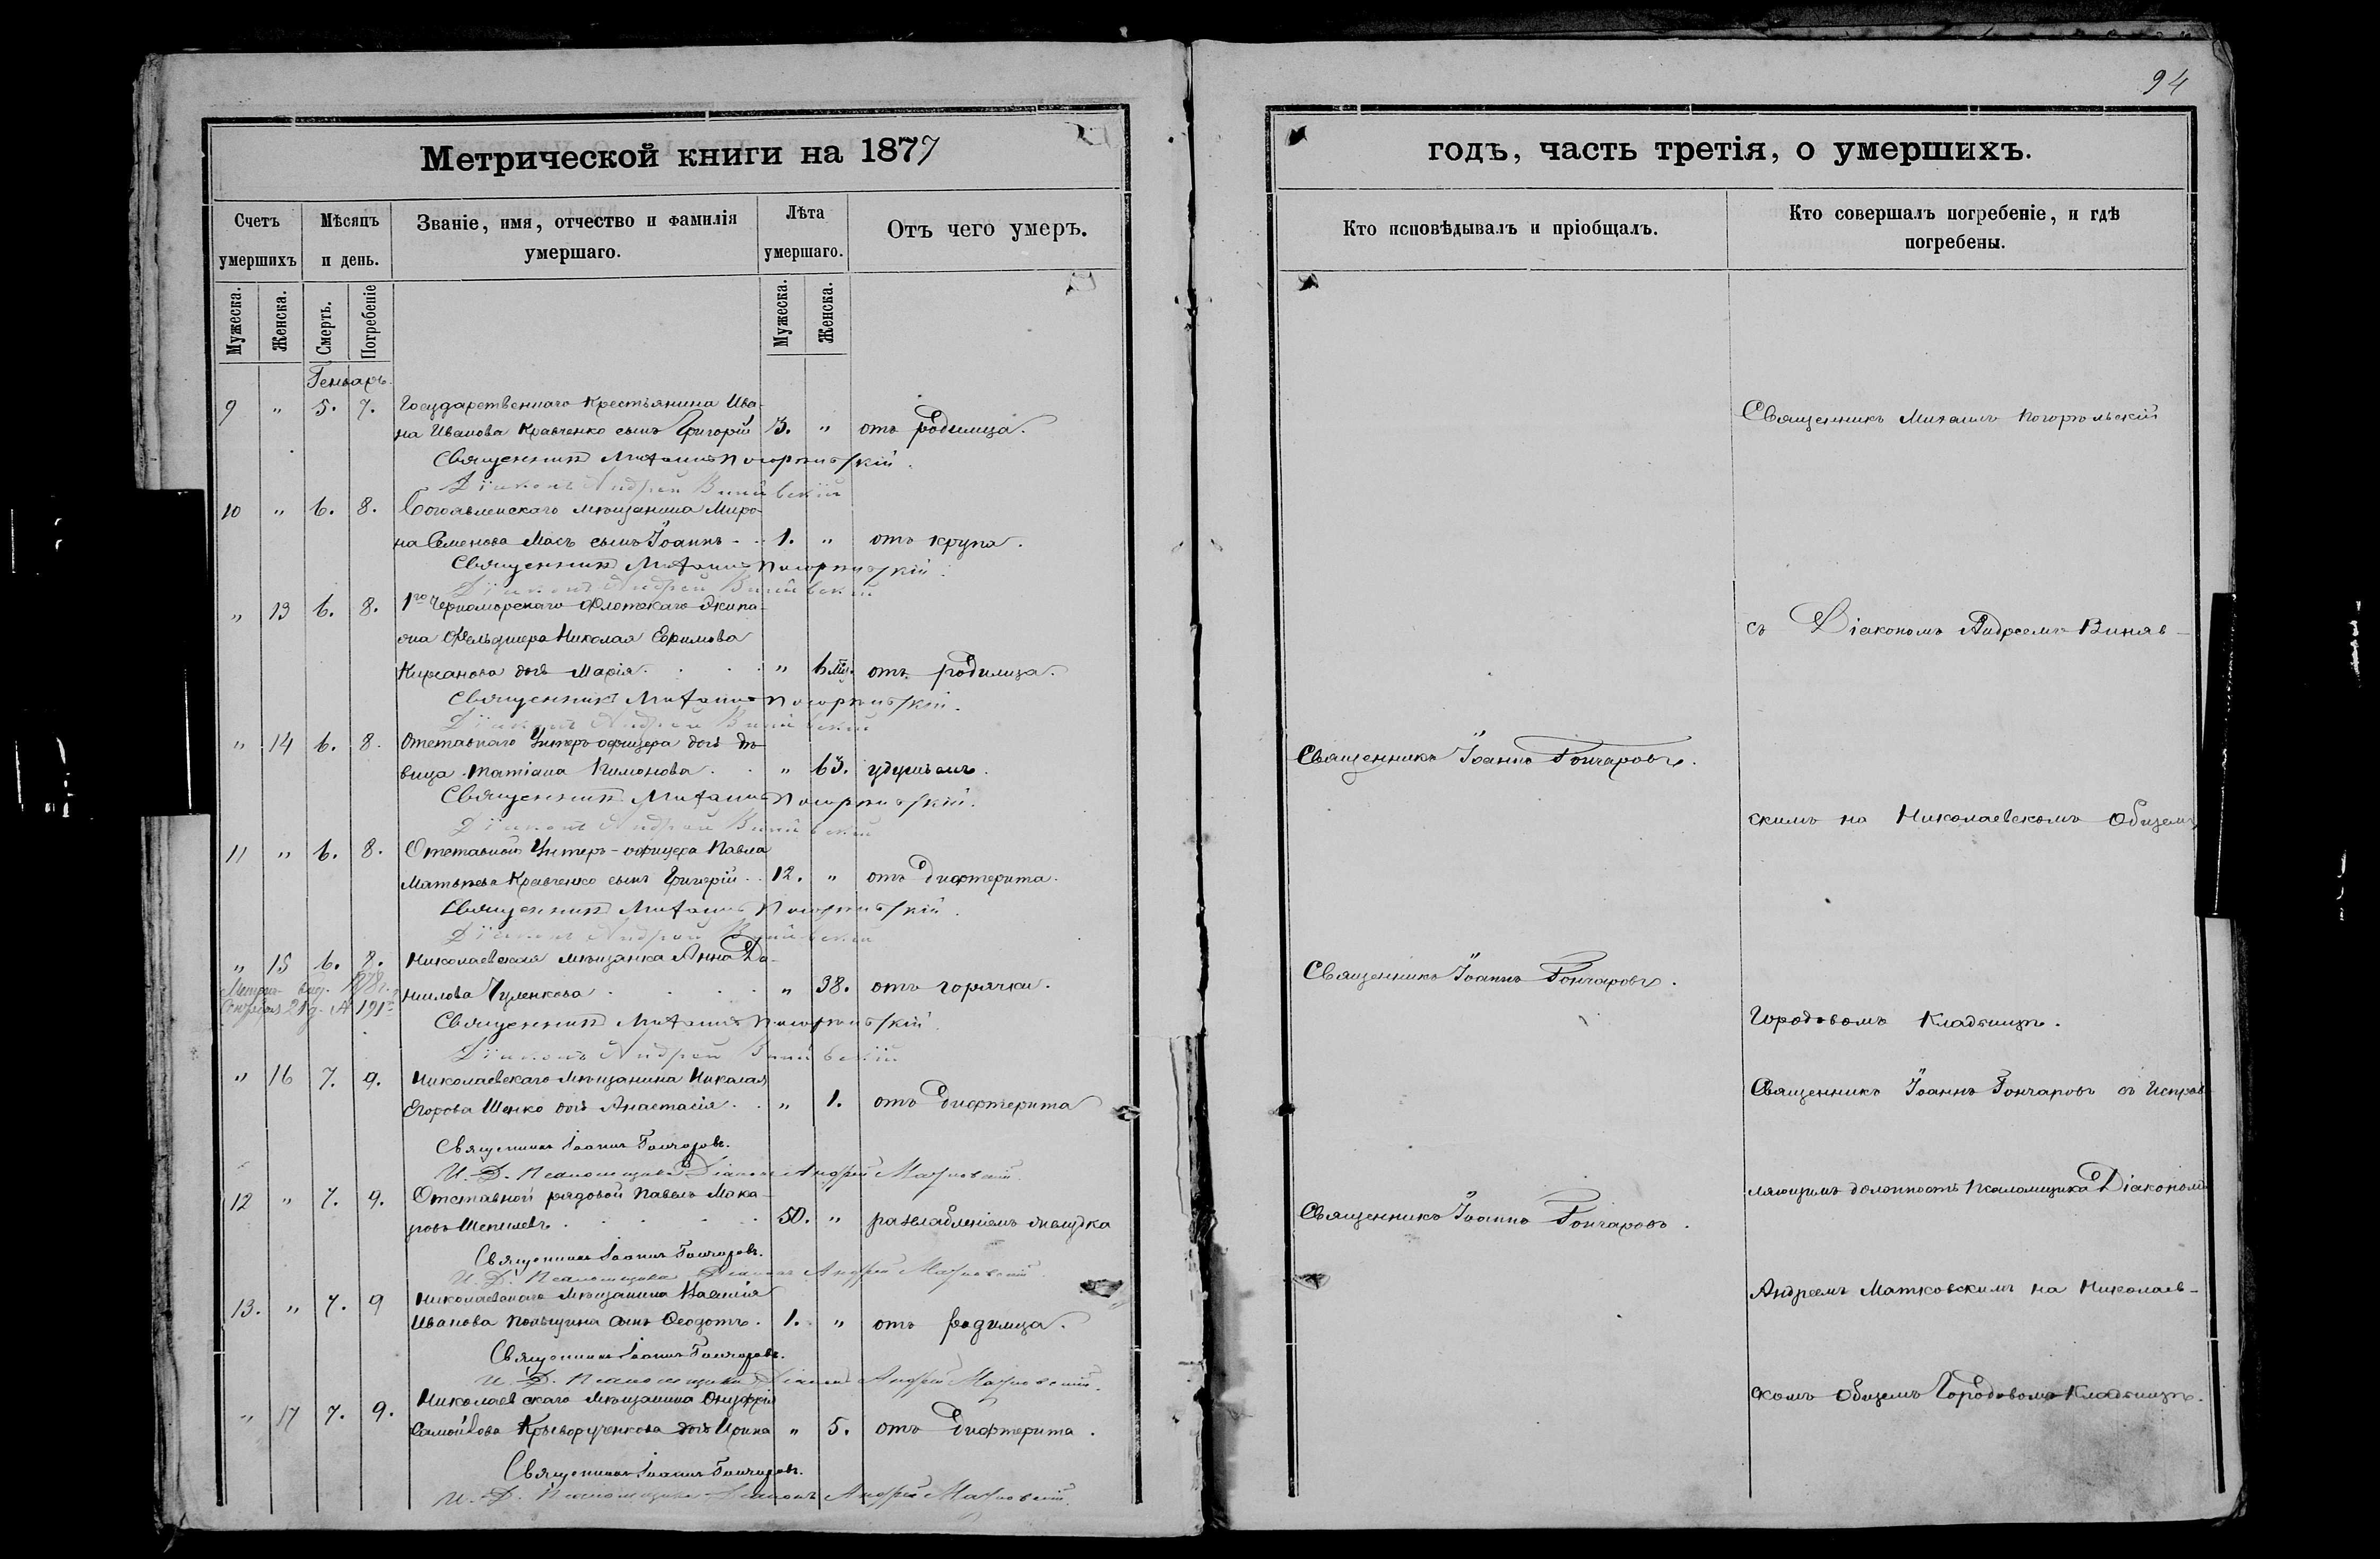 94
Метрической книги на 1877
годъ, часть третія, о умершихъ.
Счетъ умершихъ
Мѣсяцъ и день.
Званіе, имя, отчество и фамилія умершаго.
Лѣта умершаго.
Отъ чего умеръ.
Кто исповѣдывалъ и пріобщалъ.
Кто совершалъ погребеніе, и гдѣ погребены.
Мужеска.
Женска.
Смерть.
Погребеніе
Мужеска.
Женска.
Генварь.
9 " 5. 7. Государственнаго Крестьянина Ива-
на Иванова Кравченко сынъ Григорій 3. " отъ родимца.
Священникъ Михаилъ Погорѣльскій.
Діаконъ Андрей
10 " 6. 8. Богоявленскаго мѣщанина Миро-
на Семенова Мась сынъ Іоаннъ 1. " отъ крупа.
Священникъ Михаилъ Погорѣльскій.
Діаконъ Андрей
" 13 6. 8. 1го Черноморскаго Флотскаго Экипа-
жа Фельдшера Николая Ефимова
дочь Марія " 6 м. отъ родимца.
Священникъ Михаилъ Погорѣльскій.
Діаконъ Андрей
" 14 6. 8. Отставнаго Унтеръ-офицера дочь дѣ-
вица Татіана " 63. удушьемъ.
Священникъ Михаилъ Погорѣльскій.
Діаконъ Андрей
11 " 6. 8. Отставной Унтеръ-офицера Павла
Матвѣева Кравченко сынъ Григорій 12. " отъ дифтерита.
Священникъ Михаилъ Погорѣльскій.
Діаконъ Андрей
" 15 6. 8. Николаевская мѣщанка Анна Да-
нилова " 38. отъ горячки.
Священникъ Михаилъ Погорѣльскій.
Діаконъ Андрей
" 16 7. 9. Николаевскаго мѣщанина Николая
Егорова Шенко дочь Анастасія " 1. отъ дифтерита
Священникъ Іоаннъ Гончаровъ.
И. Д. Псаломщика Діаконъ Андрей Матковскій.
12 " 7. 9. Отставной рядовой Павелъ Мака-
ровъ Шепилевъ 50. " разслабленіемъ желудка
Священникъ Іоаннъ Гончаровъ.
И. Д. Псаломщика Діаконъ Андрей Матковскій.
13. " 7. 9 Николаевскаго мѣщанина Василія
Иванова сынъ Ѳеодотъ. 1. " отъ родимца.
Священникъ Іоаннъ Гончаровъ.
И. Д. Псаломщика Діаконъ Андрей Матковскій.
" 17 7. 9. Николаевскаго мѣщанина Онуфрія
Самойлова Криворученкова дочь Ирина " 5. отъ дифтерита.
Священникъ Іоаннъ Гончаровъ.
И. Д. Псаломщика Діаконъ Андрей Матковскій.
Священникъ Іоаннъ Гончаровъ.
Священникъ Іоаннъ Гончаровъ.
Священникъ Іоаннъ Гончаровъ.
Священникъ Михаилъ Погорѣльскій
съ Діакономъ Андреемъ Виняв-
скимъ на Николаевскомъ Общемъ
Городовомъ Кладбищѣ.
Священникъ Іоаннъ Гончаровъ съ Исправ-
ляющимъ должность Псаломщика Діакономъ
Андреемъ Матковскимъ на Николаев-
скомъ Общемъ Городовомъ Кладбищѣ.